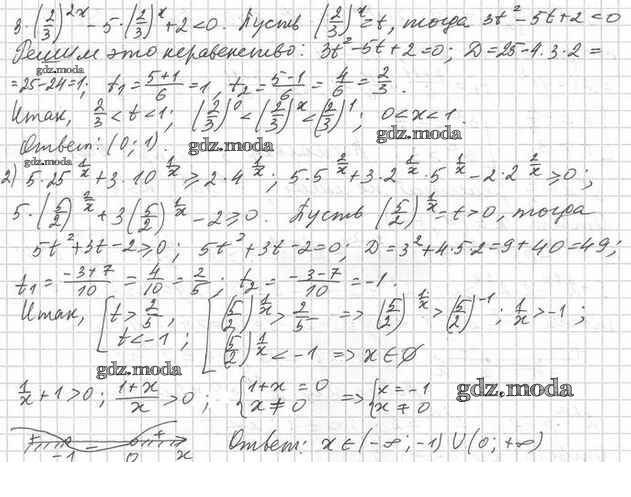 3·(2/3)^{2x} - 5·(2/3)^x + 2 < 0. Пусть (2/3)^x = t, тогда 3t² - 5t + 2 < 0
Решим это неравенство: 3t² - 5t + 2 = 0; D = 25 - 4·3·2 =
gdz.moda
= 25 - 24 = 1; t₁ = (5+1)/6 = 1, t₂ = (5-1)/6 = 4/6 = 2/3.
Итак, 2/3 < t < 1; (2/3)^0 < (2/3)^x < (2/3)^1; 0 < x < 1.
Ответ: (0; 1). gdz.moda gdz.moda
gdz.moda
2) 5·25^{1/x} + 3·10^{1/x} ≥ 2·4^{1/x}; 5·5^{2/x} + 3·2^{1/x}·5^{1/x} - 2·2^{2/x} ≥ 0;
5·(5/2)^{2/x} + 3(5/2)^{1/x} - 2 ≥ 0. Пусть (5/2)^{1/x} = t > 0, тогда
5t² + 3t - 2 ≥ 0; 5t² + 3t - 2 = 0; D = 3² + 4·5·2 = 9 + 40 = 49;
t₁ = (-3+7)/10 = 4/10 = 2/5; t₂ = (-3-7)/10 = -1.
Итак, [t > 2/5, [(5/2)^{1/x} > 2/5 => (5/2)^{1/x} > (5/2)^{-1}; 1/x > -1;
t < -1; (5/2)^{1/x} < -1 => x ∈ ∅
gdz.moda
1/x + 1 > 0; (1+x)/x > 0; {1+x = 0 => {x = -1
x ≠ 0 x ≠ 0
gdz.moda
+ - +
-1 0 x
Ответ: x ∈ (-∞; -1) ∪ (0; +∞)